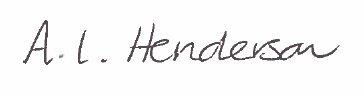 A. L. Henderson